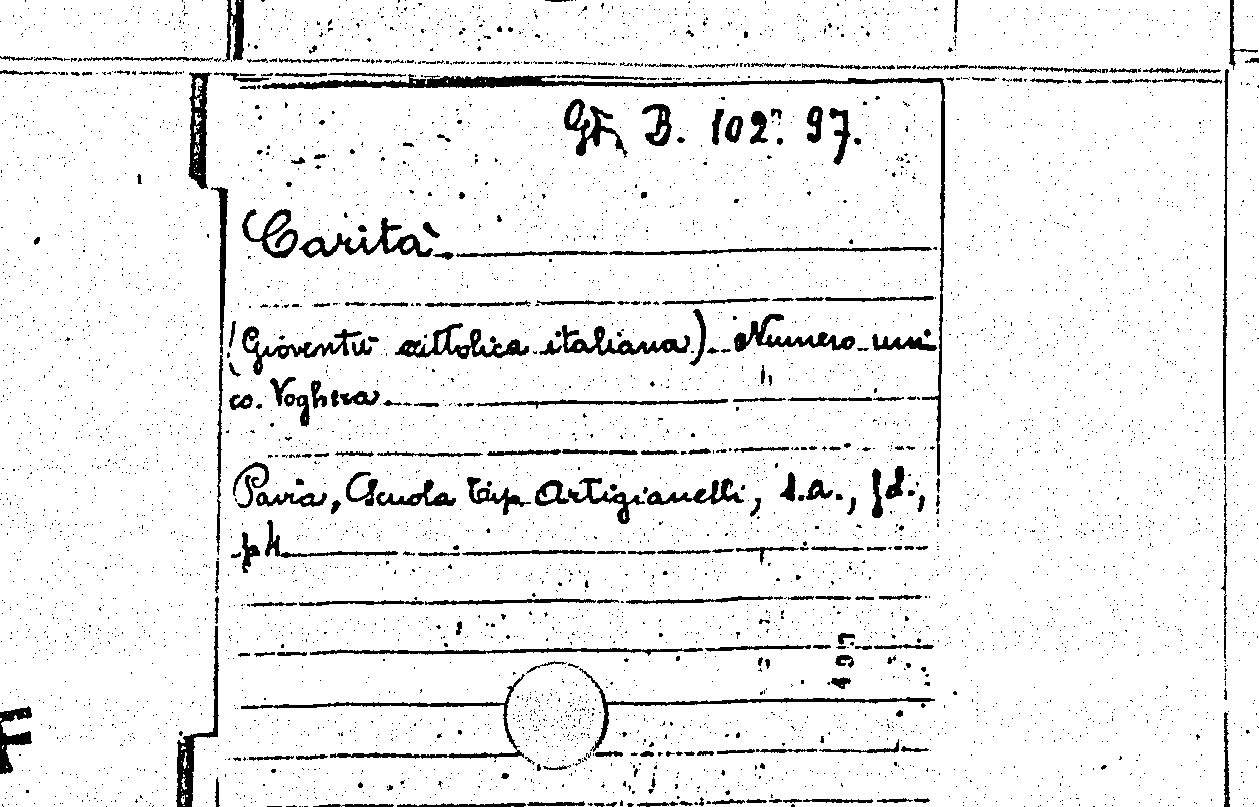 B. 102. 97.
Carità
(Gioventù cattolica italiana). Numero uni-
co. Voghera.
Pavia, Scuola tip. Artigianelli, s.a., fol.,
p. 4.
497
F